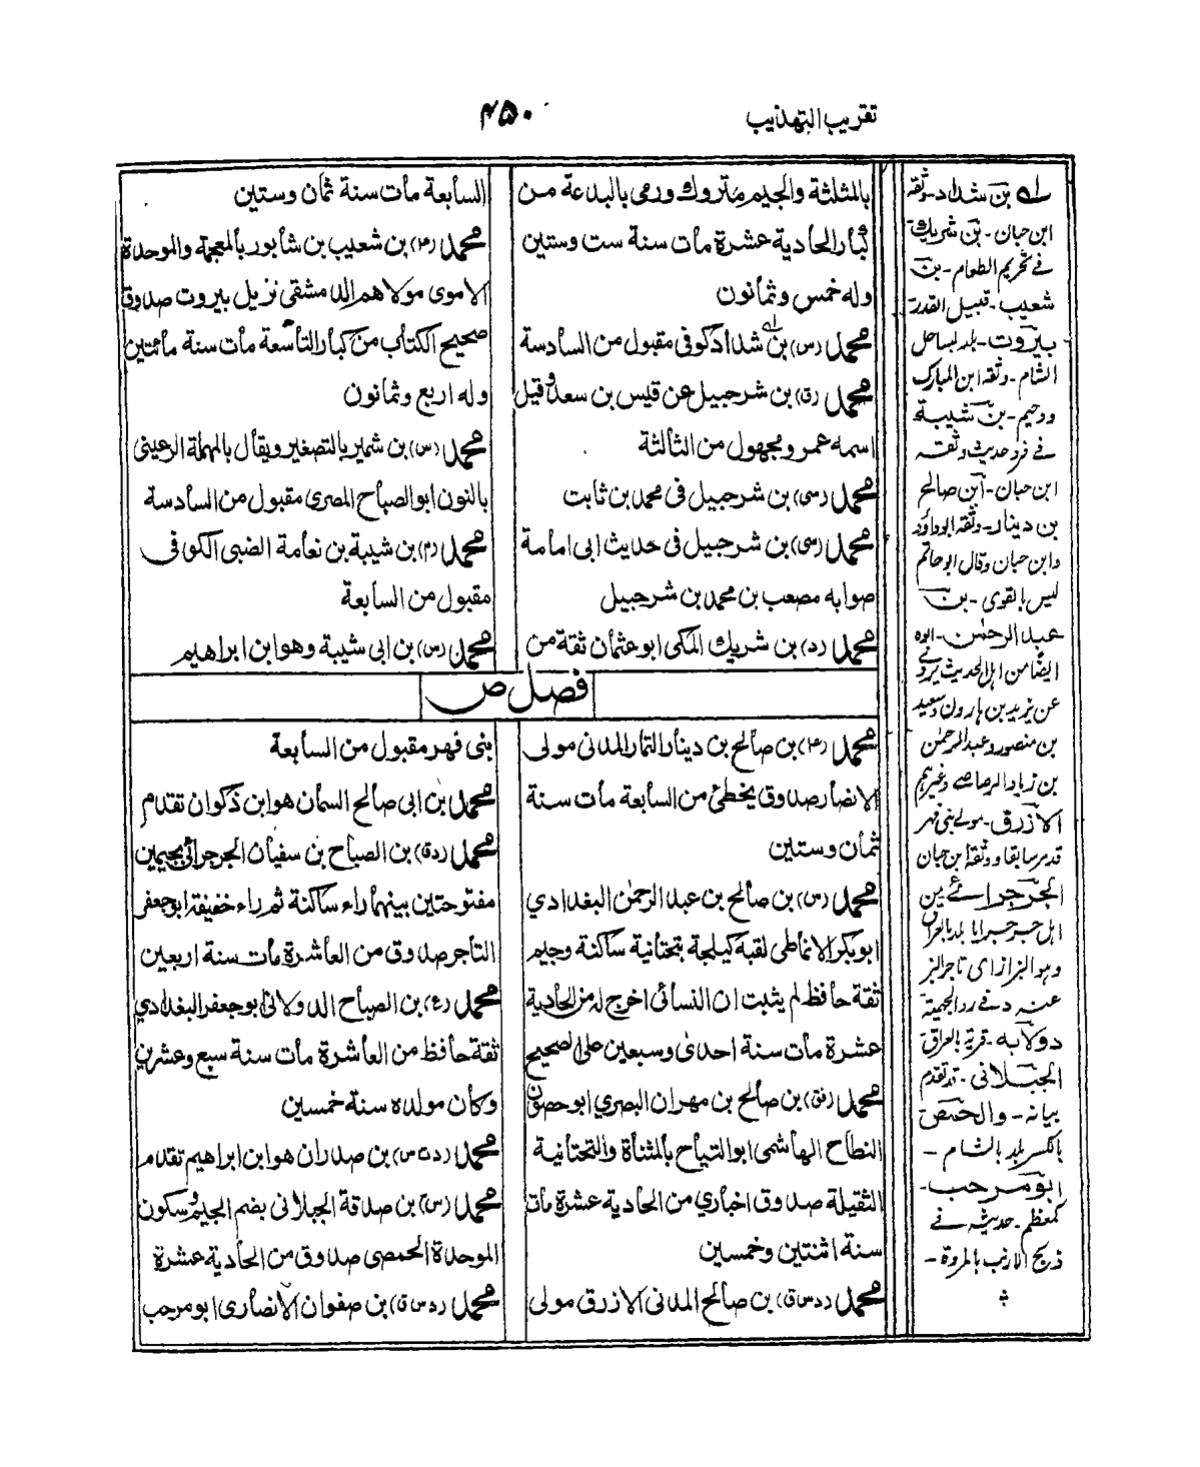 تقريب التهذيب
۴۵۰
بالمثلثة والجيم متروك ورمى بالبدعة من
كبار الحادية عشرة مات سنة ست وستين
وله خمس وثمانون
محمد (س) بن شداد كوفى مقبول من السادسة
محمد (ق) بن شرحبيل عن قيس بن سعد وقيل
اسمه عمرو مجهول من الثالثة
محمد (سى) بن شرحبيل فى محمد بن ثابت
محمد (سى) بن شرحبيل فى حديث ابى امامة
صوابه مصعب بن محمد بن شرحبيل
محمد (د) بن شريك المكى ابو عثمان ثقة من
السابعة مات سنة ثمان وستين
محمد (۴) بن شعيب بن شابور بالمعجمة والموحدة
الاموى مولاهم الدمشقى نزيل بيروت صدوق
صحيح الكتاب من كبار التاسعة مات سنة مائتين
وله اربع وثمانون
محمد (س) بن شمير بالتصغير ويقال بالمهملة الرعينى
بالنون ابو الصباح المصرى مقبول من السادسة
محمد (م) بن شيبة بن نعامة الضبى الكوفى
مقبول من السابعة
محمد (س) بن ابى شيبة وهو ابن ابراهيم
فصل ص
محمد (۴) بن صالح بن دينار التمار المدنى مولى
الانصار صدوق يخطئ من السابعة مات سنة
ثمان وستين
محمد (س) بن صالح بن عبد الرحمن البغدادي
ابو بكر الانماطى لقبه كيلجة بتحتانية ساكنة وجيم
ثقة حافظ لم يثبت ان النسائى اخرج له من الحادية
عشرة مات سنة احدى وسبعين على الصحيح
محمد بن صالح بن مهران البصري ابو
النطاح الهاشمى ابو التياح بالمثناة والتحتانية
الثقيلة صدوق اخباري من الحادية عشرة مات
سنة اثنتين وخمسين
محمد (د س ق) بن صالح المدنى الازرق مولى
بنى فهر مقبول من السابعة
محمد بن ابى صالح السمان هو ابن ذكوان تقدم
محمد (د ق) بن الصباح بن سفيان الجرجرائى بجيمين
مفتوحتين بينهما راء ساكنة ثم راء خفيفة ابو جعفر
التاجر صدوق من العاشرة مات سنة اربعين
محمد (ع) بن الصباح الدولابى ابو جعفر البغدادي
ثقة حافظ من العاشرة مات سنة سبع وعشرين
وكان مولده سنة خمسين
محمد (د ت س) بن صدران هو ابن ابراهيم تقدم
محمد (س) بن صدقة الجبلانى بضم الجيم وسكون
الموحدة الحمصى صدوق من الحادية عشرة
محمد (د س ق) بن صفوان الانصارى ابو مرحب
له بن شداد - وثقه
ابن حبان - بن شريك
فے تحريم الطعام - بن
شعيب - قبيل القدر
بيروت - بلد بساحل
الشام - وثقه ابن المبارك
ودحيم - بن شيبة
فے فرد حديث وثقه
ابن حبان - ابن صالح
بن دينار - وثقه ابو داؤد
وابن حبان وقال ابو حاتم
ليس بالقوى - بن
عبد الرحمٰن - ابوه
ايضًا من اهل الحديث يروے
عن يزيد بن ہارون وسعيد
بن منصور وعبد الرحمٰن
بن زياد الرصاصے وغيرہم
الازرق - مولے بنى فہر
قدمر سابقا ووثقه ابن حبان
الجرجرائے من
اہل جرجرايا بلد بالعراق
وہو البزاز اى تاجر البز
عنہ د فے رد الجهمية
دولابه - قرية بالعراق
الجبلانى - قد تقدم
بيانه - والحمص
بالكسر بلد بالشام -
ابو مرحب -
كمعظم - حديثہ فے
ذبح الارنب بالمروة -